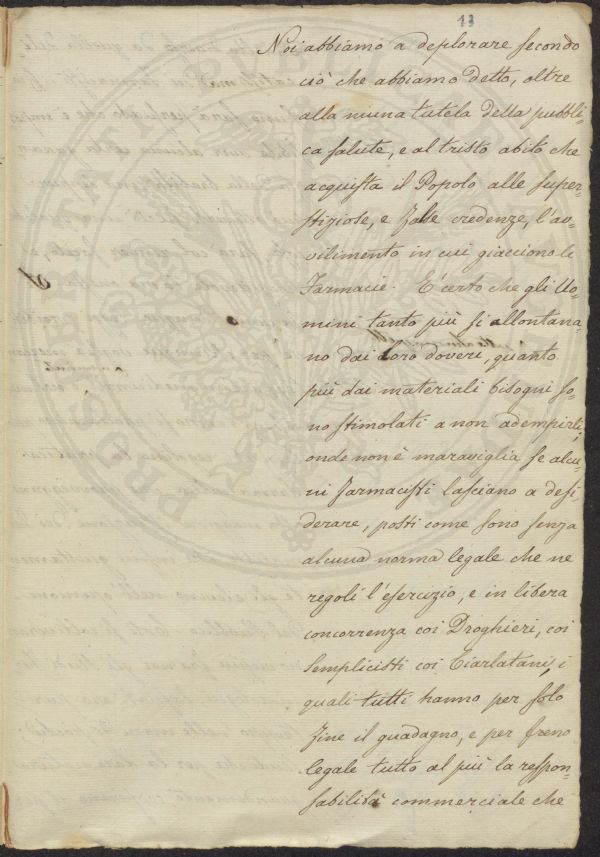 13
Noi abbiamo a deplorare secondo
ciò che abbiamo detto, oltre
alla niuna tutela della pubbli=
ca salute, e al tristo abito che
acquista il Popolo alle super=
stiziose, e false credenze, l'av=
vilimento in cui giacciono le
Farmacie. È certo che gli Uo=
mini tanto più si allontana=
no dai loro doveri, quanto
più dai materiali bisogni so=
no stimolati a non adempirli,
onde non è maraviglia se alcu=
ni farmacisti lasciano a desi
derare, posti come sono senza
alcuna norma legale che ne
regoli l'esercizio, e in libera
concorrenza coi Droghieri, coi
Semplicisti coi Ciarlatani, i
quali tutti hanno per solo
fine il guadagno, e per freno
legale tutto al più la respon=
sabilità commerciale che